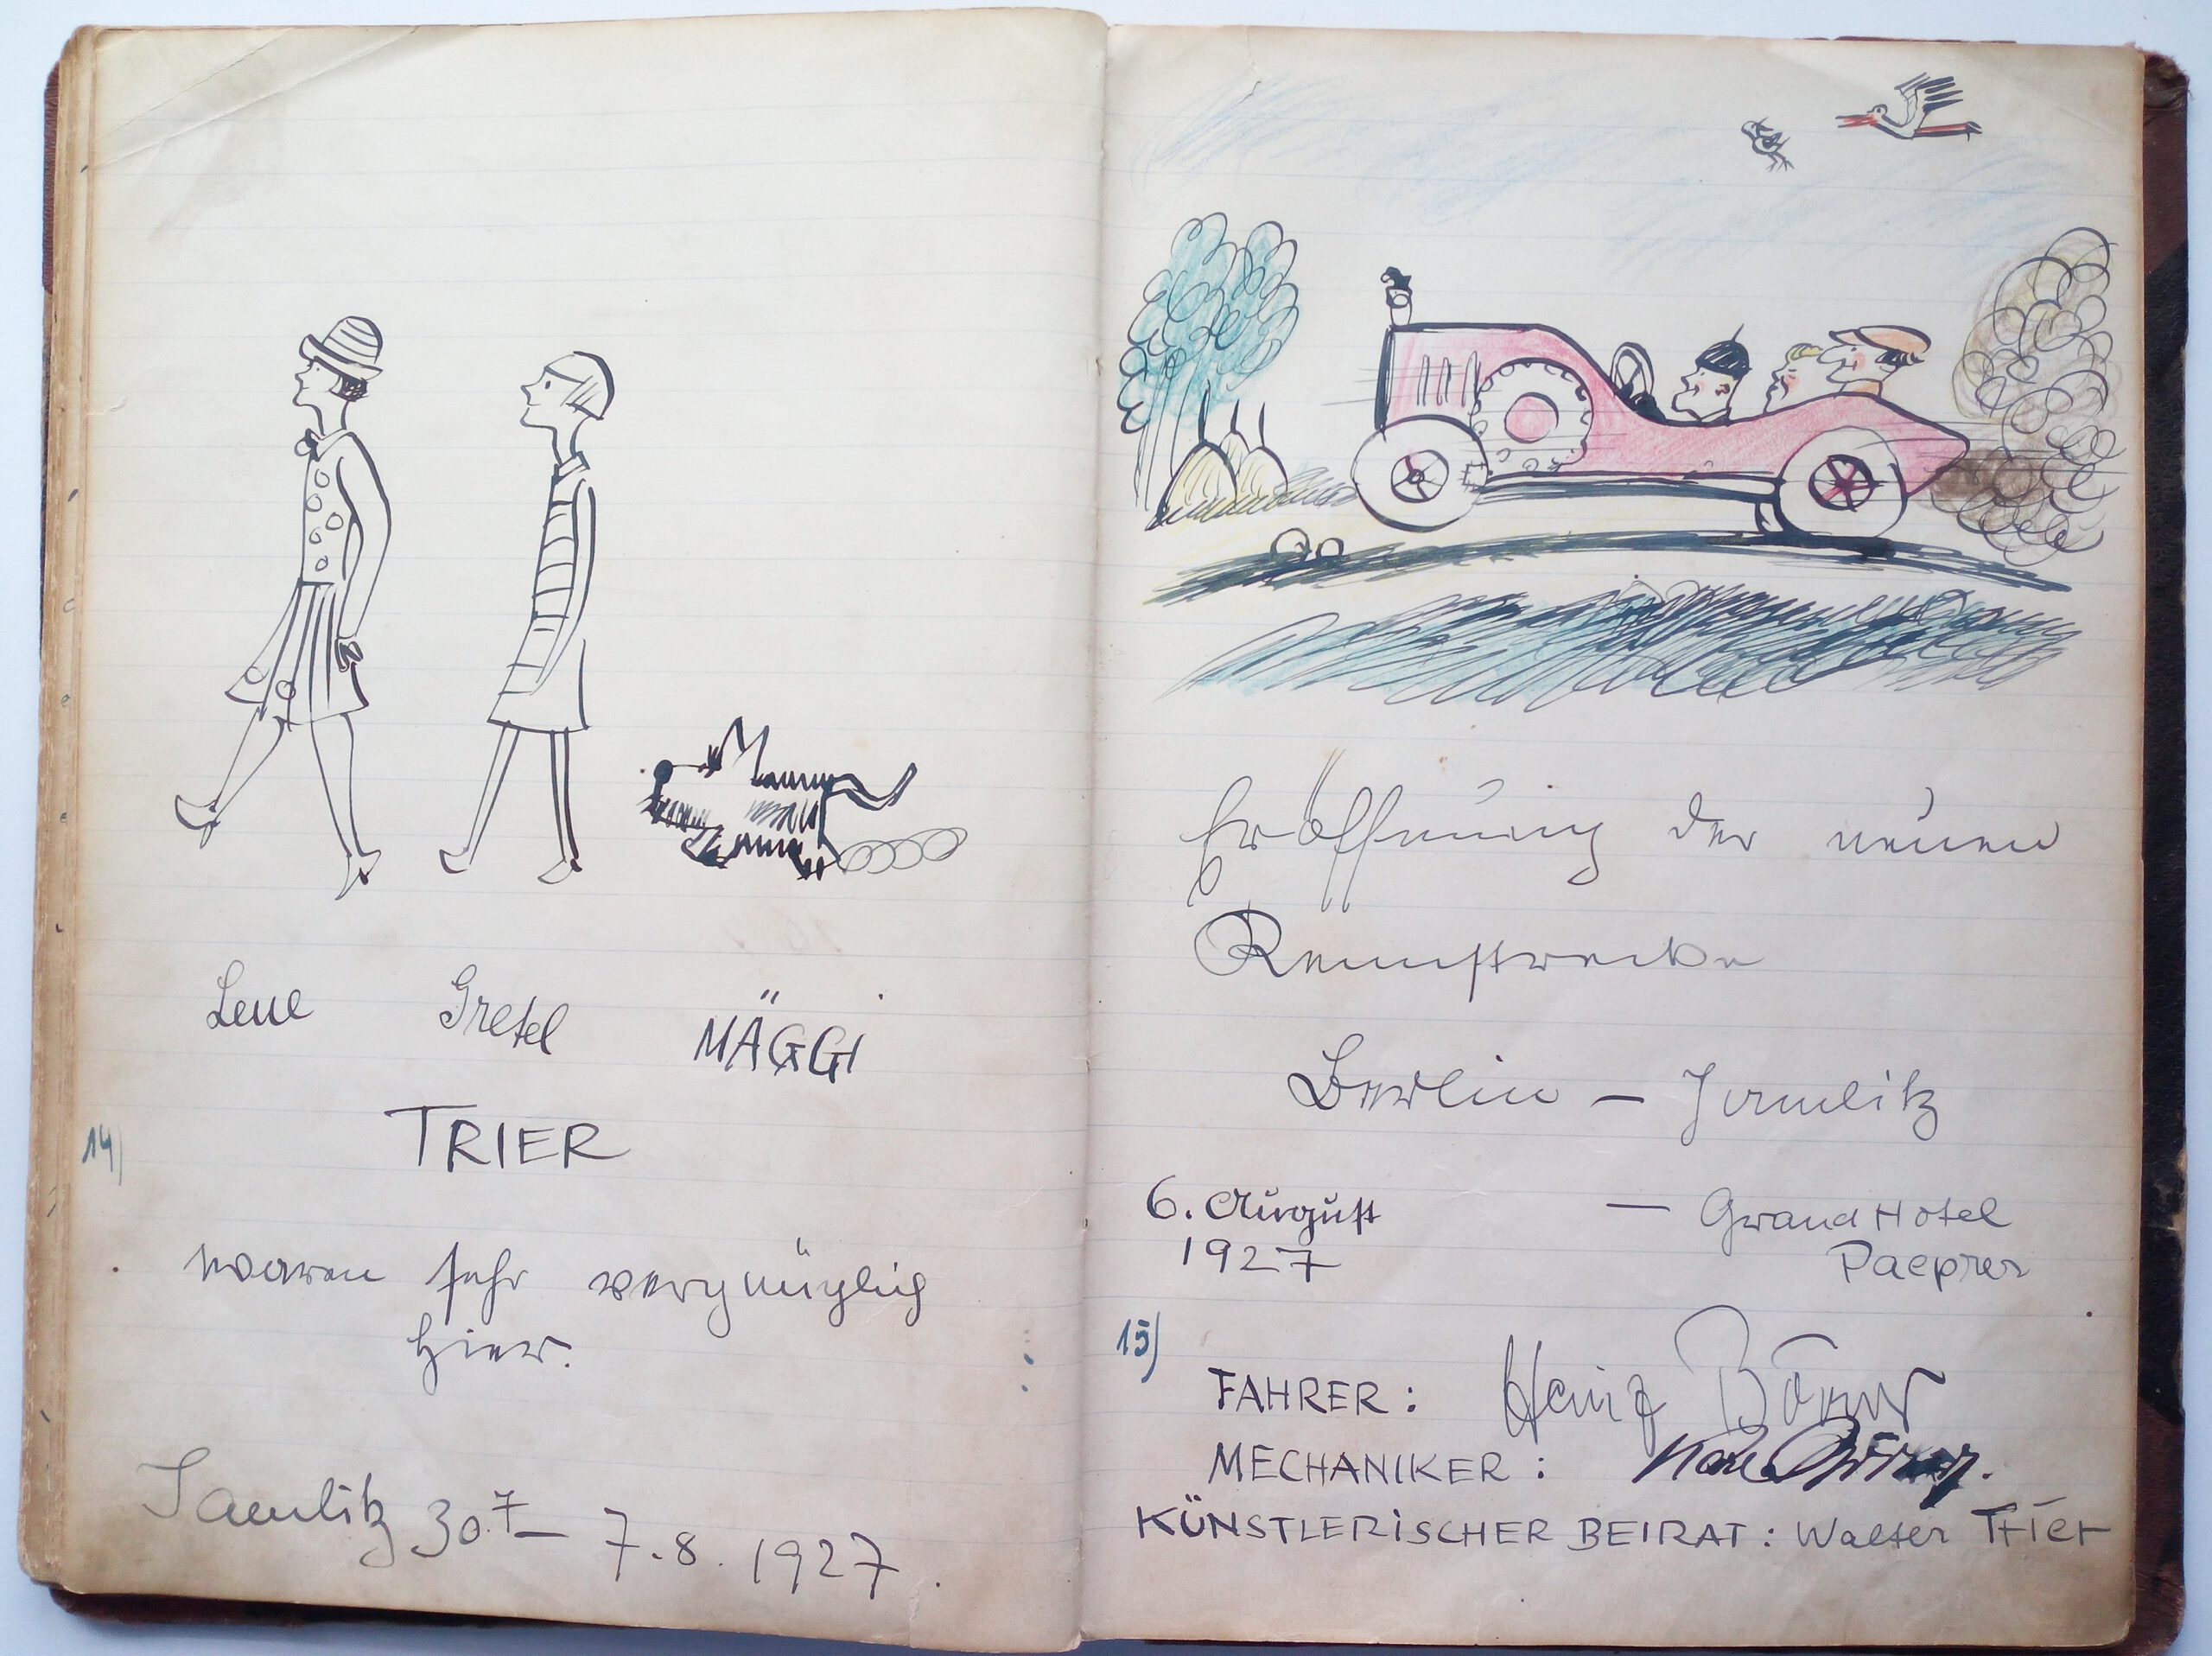 Lene Gretel MÄGGI
TRIER
14)
waren sehr vergnüglich
hier.
Jamlitz 30.7 – 7.8.1927.
Eröffnung der neuen
Rennstrecke
Berlin – Jamlitz
6. August
1927
– Grand Hotel
Paeprer
15)
FAHRER: Heinz
MECHANIKER:
KÜNSTLERISCHER BEIRAT: Walter Trier